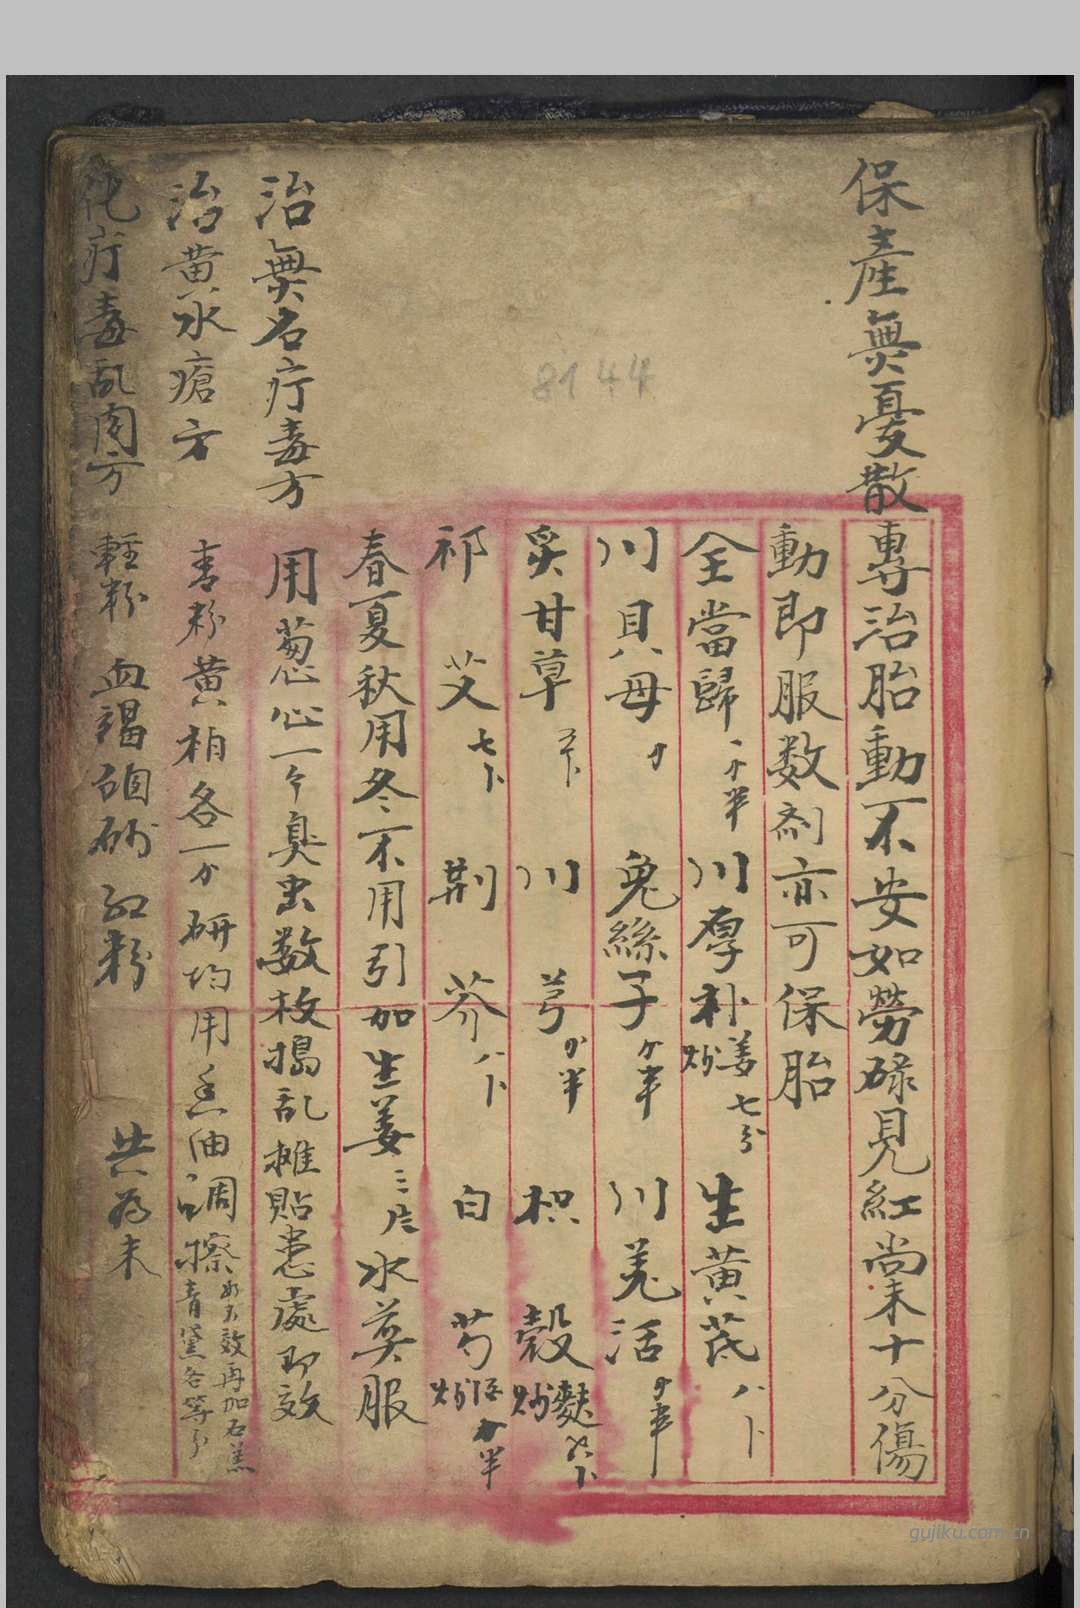 保產無憂散
專治胎動不安如勞碌見紅尚未十分傷
動即服数剂亦可保胎
全當歸 川厚朴姜炒七分 生黃芪
川貝母 兔絲子 川羌活
炙甘草 川芎 枳殼麩炒
祁艾 荆芥 白芍酒炒
春夏秋用冬不用引加生姜三片水煎服
治無名疔毒方
用葱心一个臭虫数枚搗乱摊貼患處即效
治黄水瘡方
青粉黄柏各一分研均用香油調擦如不效再加石羔青黛各等分
化疔毒乱肉方
輕粉 血竭 硇砂 红粉 共为末
8144
gujiku.com.cn